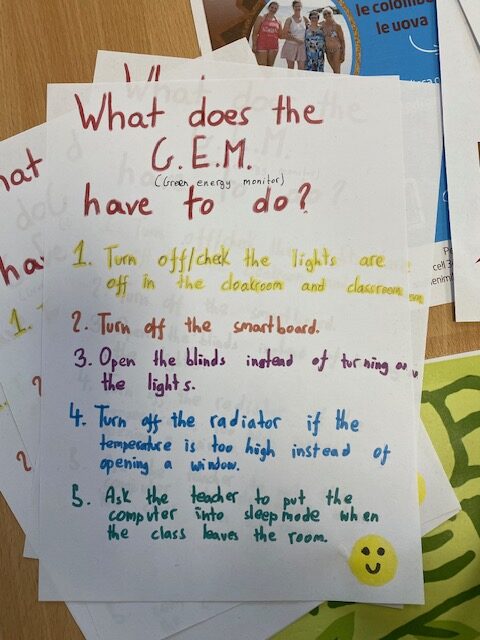 le colombe
le uova
What does the
G.E.M.
(Green energy monitor)
have to do?
1. Turn off/chek the lights are
off in the cloakroom and classroom
2. Turn off the smartboard.
3. Open the blinds instead of turning on
the lights.
4. Turn off the radiator if the
temperature is too high instead of
opening a window.
5. Ask the teacher to put the
computer into sleepmode when
the class leaves the room.
hat
ha
1.
2
2
cell 3